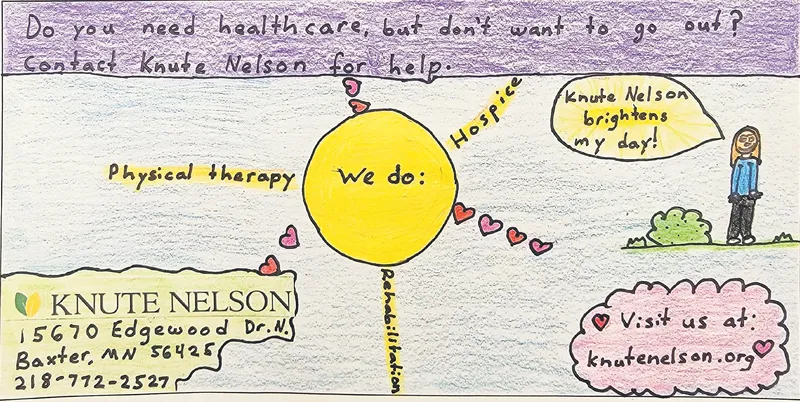 Do you need healthcare, but don't want to go out?
Contact Knute Nelson for help.
Hospice
Knute Nelson
brightens
my day!
Physical therapy
We do:
Rehabilitation
KNUTE NELSON
15670 Edgewood Dr. N.
Baxter, MN 56425
218-772-2527
Visit us at:
knutenelson.org